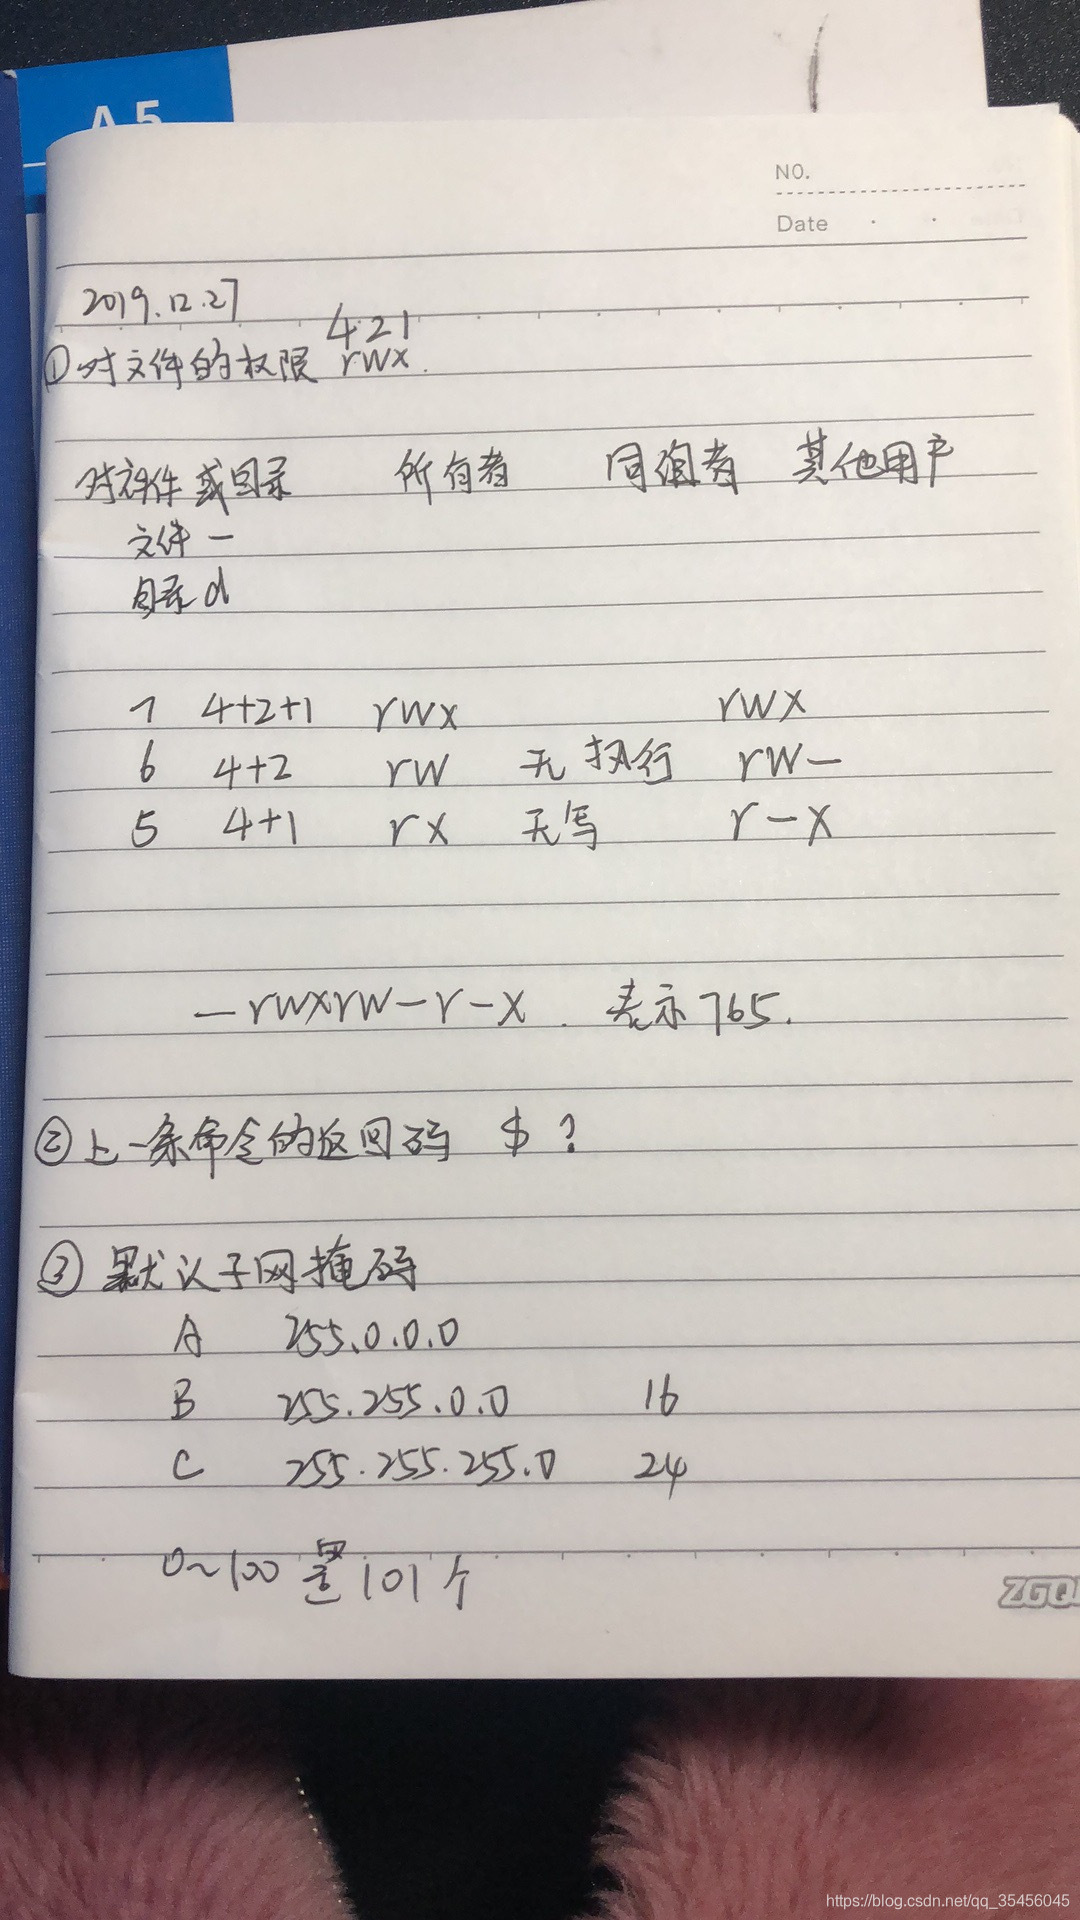 A5
NO.
Date
2019.12.27
421
①对文件的权限 rwx.
对文件或目录 所有者 同组者 其他用户
文件 —
目录 d
7 4+2+1 rwx rwx
6 4+2 rw 无执行 rw—
5 4+1 rx 无写 r—x
—rwxrw—r—x. 表示765.
②上一条命令的返回码 $?
③默认子网掩码
A 255.0.0.0
B 255.255.0.0 16
C 255.255.255.0 24
0~100 是 101个
https://blog.csdn.net/qq_35456045